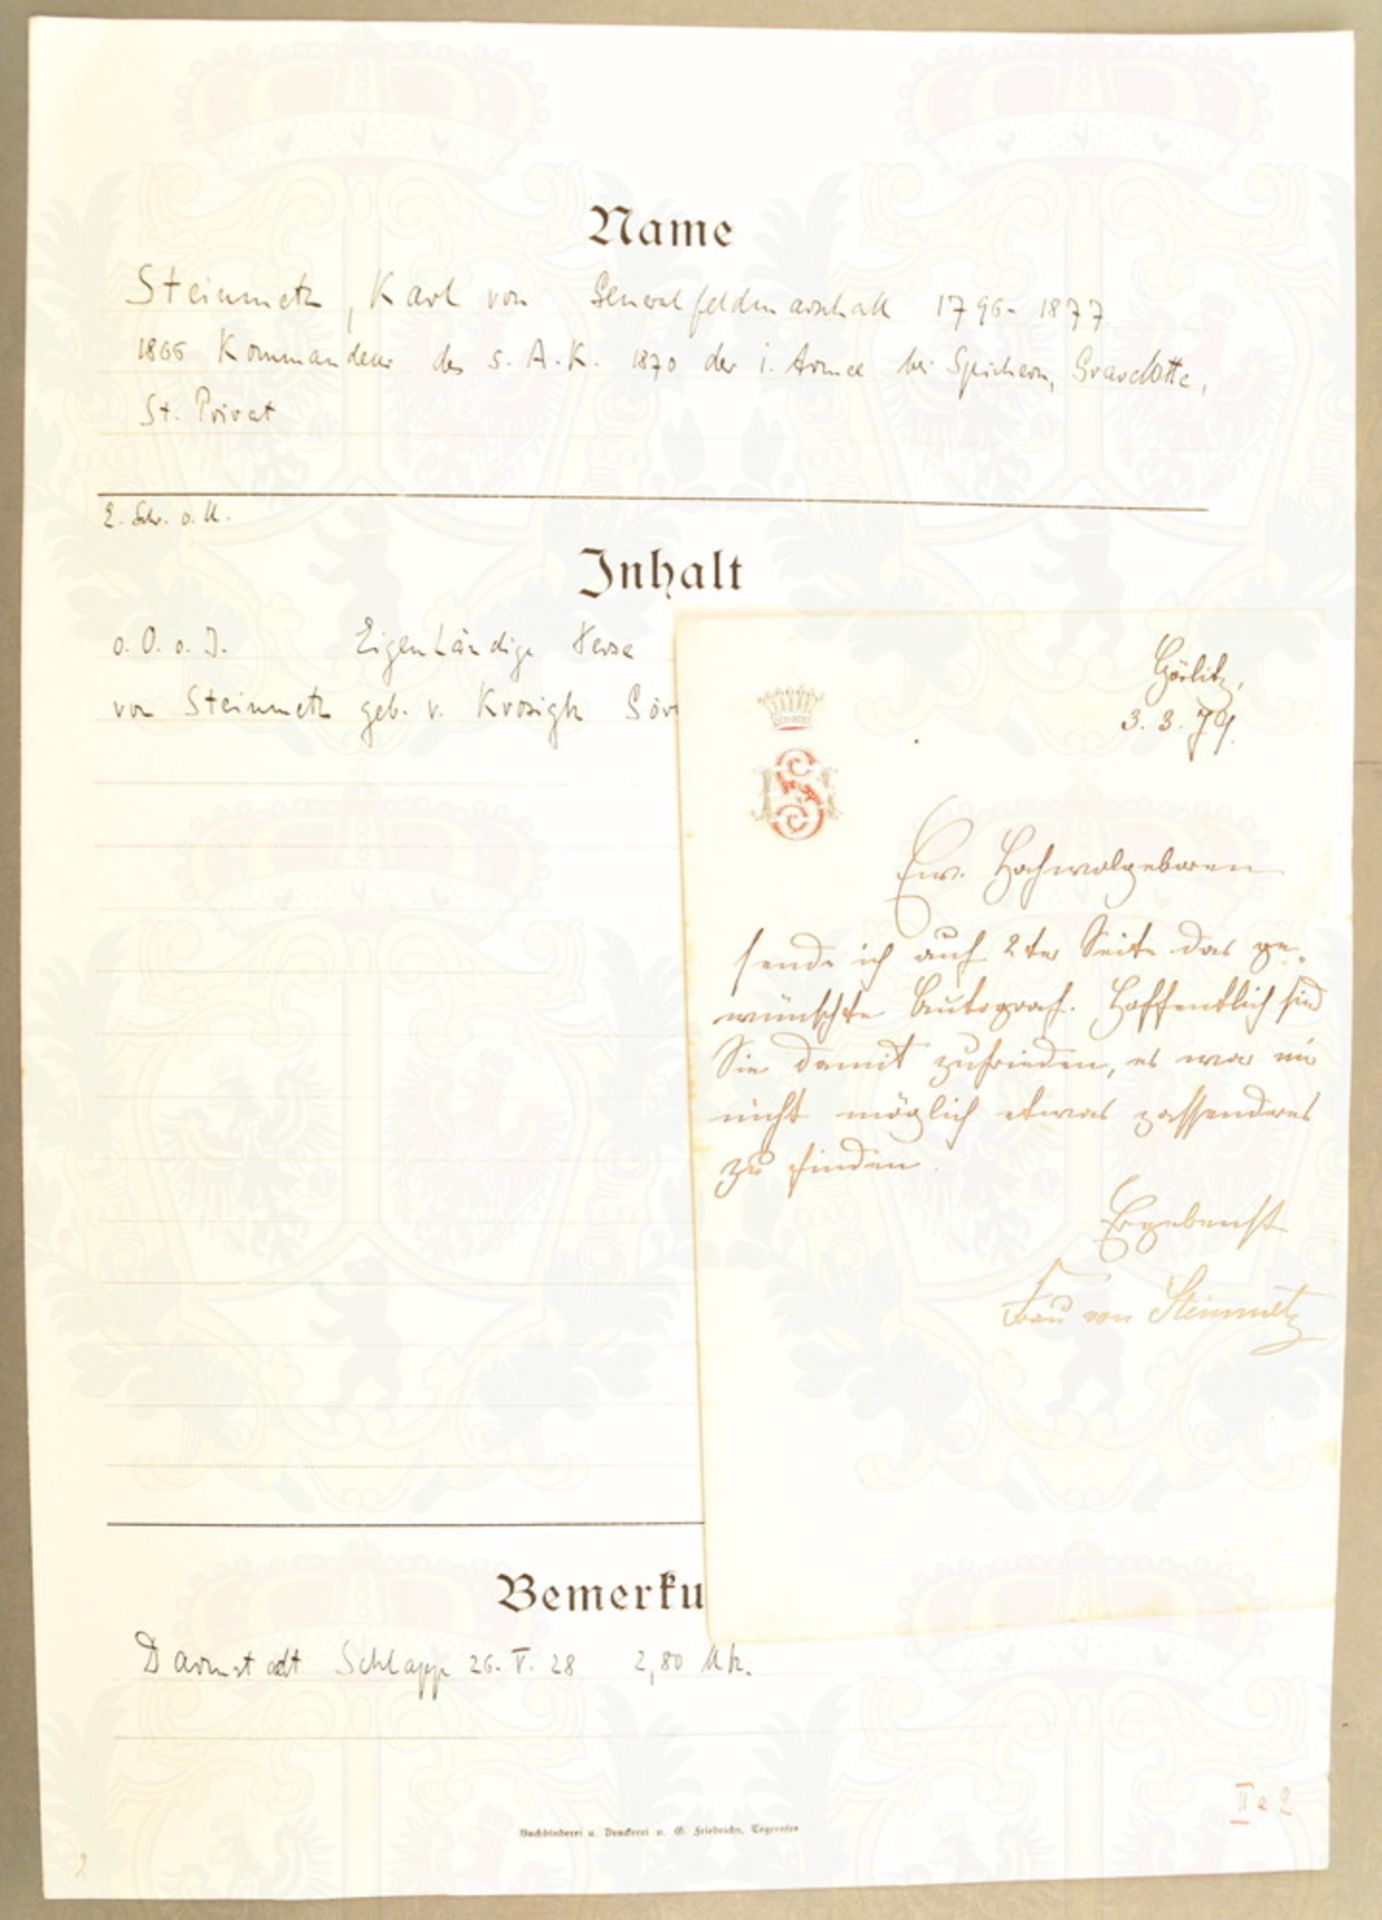 Name
Steinmetz, Karl von Generalfeldmarschall 1796-1877
1866 Kommandeur des 5. A.K. 1870 der i. Armee bei Spichern, Gravelotte,
St. Privat
2. Schr. o. U.
Inhalt
o. O. o. J. Eigenhändige Verse
von Steinmetz geb. v. Krosigk Gör
Görlitz,
3. 3. 79.
Ew. Hochwolgeboren
sende ich auf 2ter Seite das ge-
wünschte Autograf. Hoffentlich sind
Sie damit zufrieden, es war mir
nicht möglich etwas passenderes
zu finden.
Ergebenst
Frau von Steinmetz
Bemerku
Darmstadt Schlapp 26. V. 28 2,80 Mk.
II e 2
Buchbinderei u. Druckerei v. G. Friedrichs, Tegernsee
2